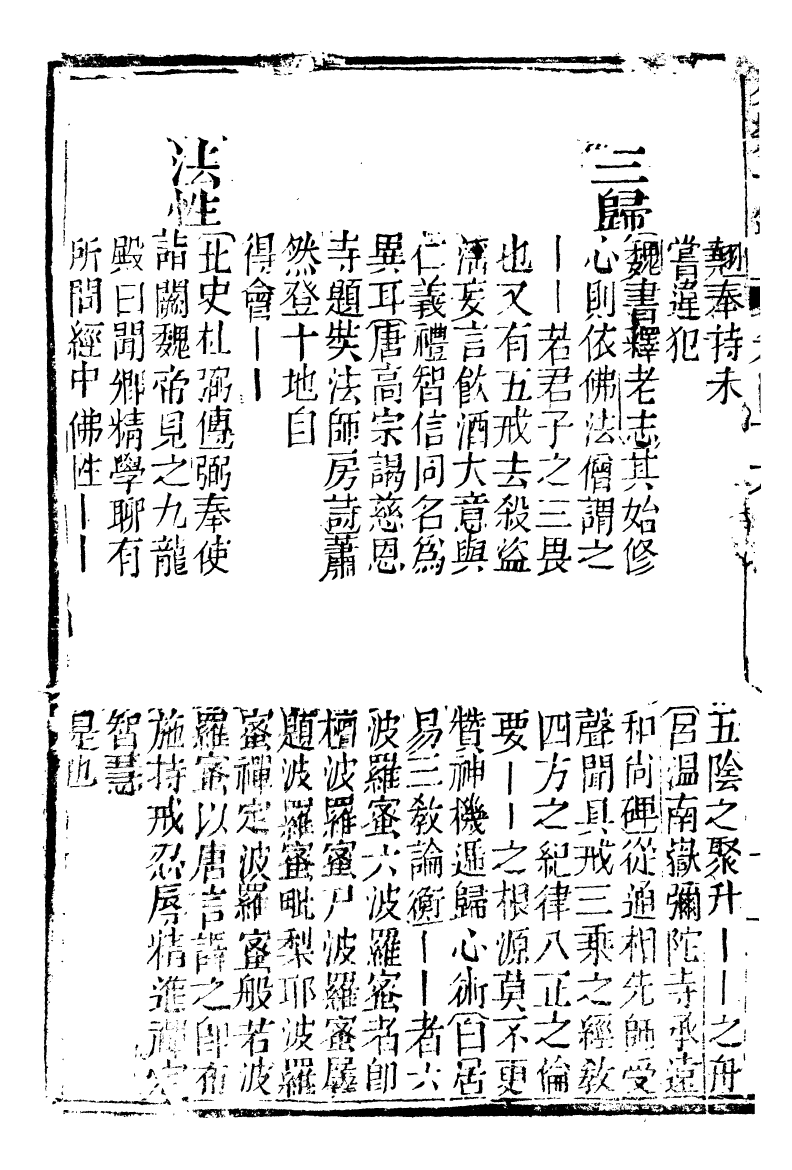 翹奉持未
嘗違犯
三歸
魏書釋老志其始修
心則依佛法僧謂之
丨丨若君子之三畏
也又有五戒去殺盗
滛妄言飲酒大意與
仁義禮智信同名為
異耳唐高宗謁慈恩
寺題奘法師房詩蕭
然登十地自
得會丨丨
法性
北史杜弼傳弼奉使
詣闕魏帝見之九龍
殿曰聞卿精學聊有
所問經中佛性丨丨
五陰之聚升丨丨之舟
呂温南嶽彌陀寺承遠
和尚碑從通相先師受
聲聞具戒三乘之經敎
四方之紀律八正之倫
要丨丨之根源莫不更
贊神機遞歸心術白居
易三敎論衡丨丨者六
波羅蜜六波羅蜜者卽
檀波羅蜜尸波羅蜜羼
題波羅蜜毗梨耶波羅
蜜禪定波羅蜜般若波
羅蜜以唐言譯之卽布
施持戒忍辱精進禪定
智慧
是也